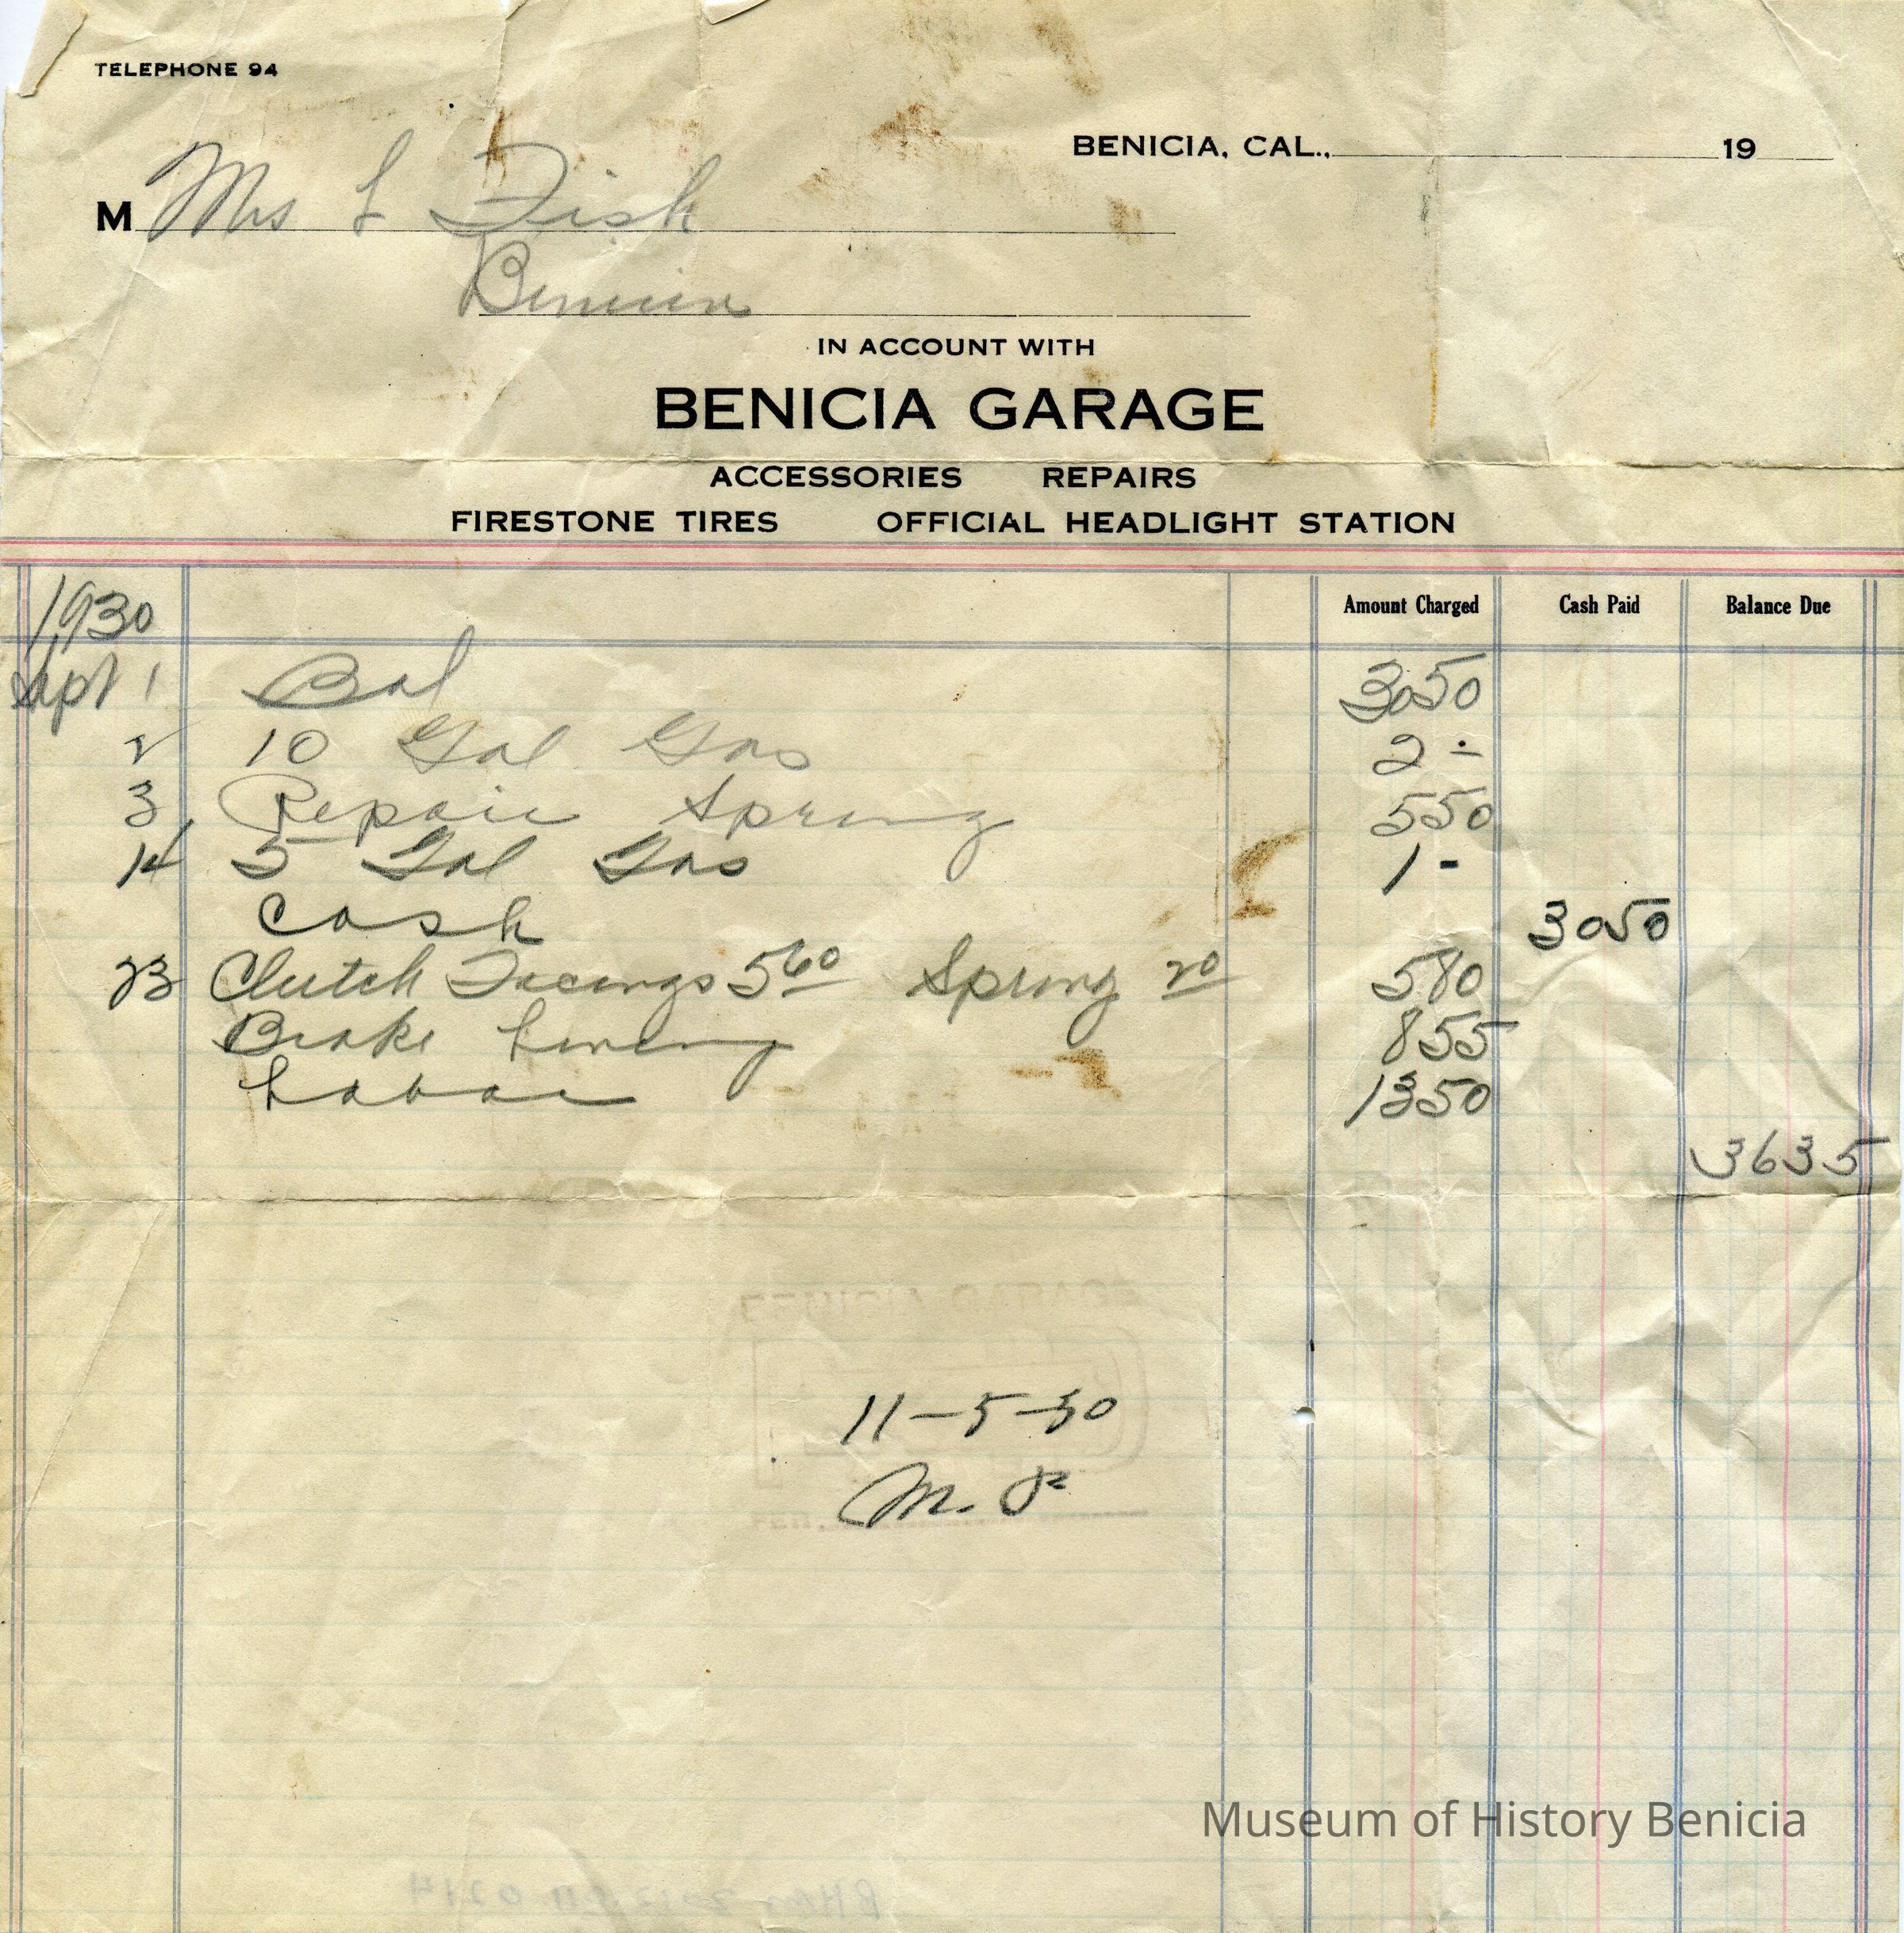 TELEPHONE 94
BENICIA, CAL., 19
M Mrs L Fisk
Benicia
IN ACCOUNT WITH
BENICIA GARAGE
ACCESSORIES REPAIRS
FIRESTONE TIRES OFFICIAL HEADLIGHT STATION
1930 Amount Charged Cash Paid Balance Due
Sept 1 Bal 3050
2 10 Gal Gas 2 -
3 Repair Spring 550
14 5 Gal Gas 1 -
Cash 3050
23 Clutch Facings 560 Spring 20 580
Brake Lining 855
Labor 1350
3635
11-5-30
Museum of History Benicia